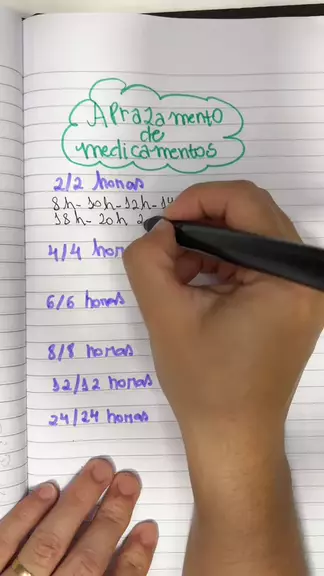 Aprazamento
de
medicamentos
2/2 horas
8h - 10h - 12h - 14
18h - 20h 2
4/4 hor
6/6 horas
8/8 horas
12/12 horas
24/24 horas